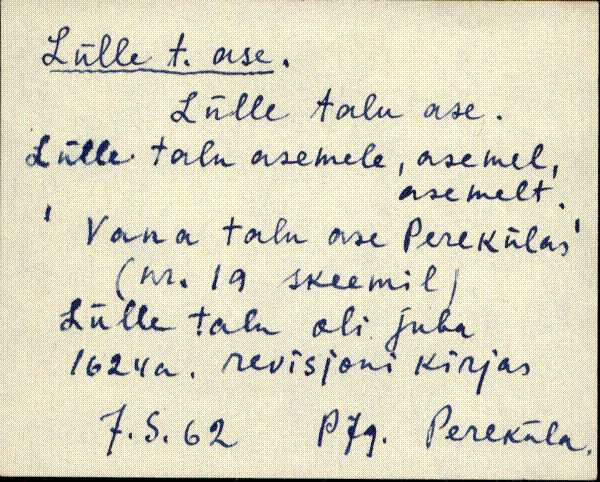 Lülle t. ase.
Lülle talu ase.
Lülle talu asemele, asemel,
asemelt.
' Vana talu ase Perekülas'
(nr. 19 skeemil)
Lülle talu oli juba
1624 a. revisjoni kirjas
7.S.62 Pjg. Pereküla.